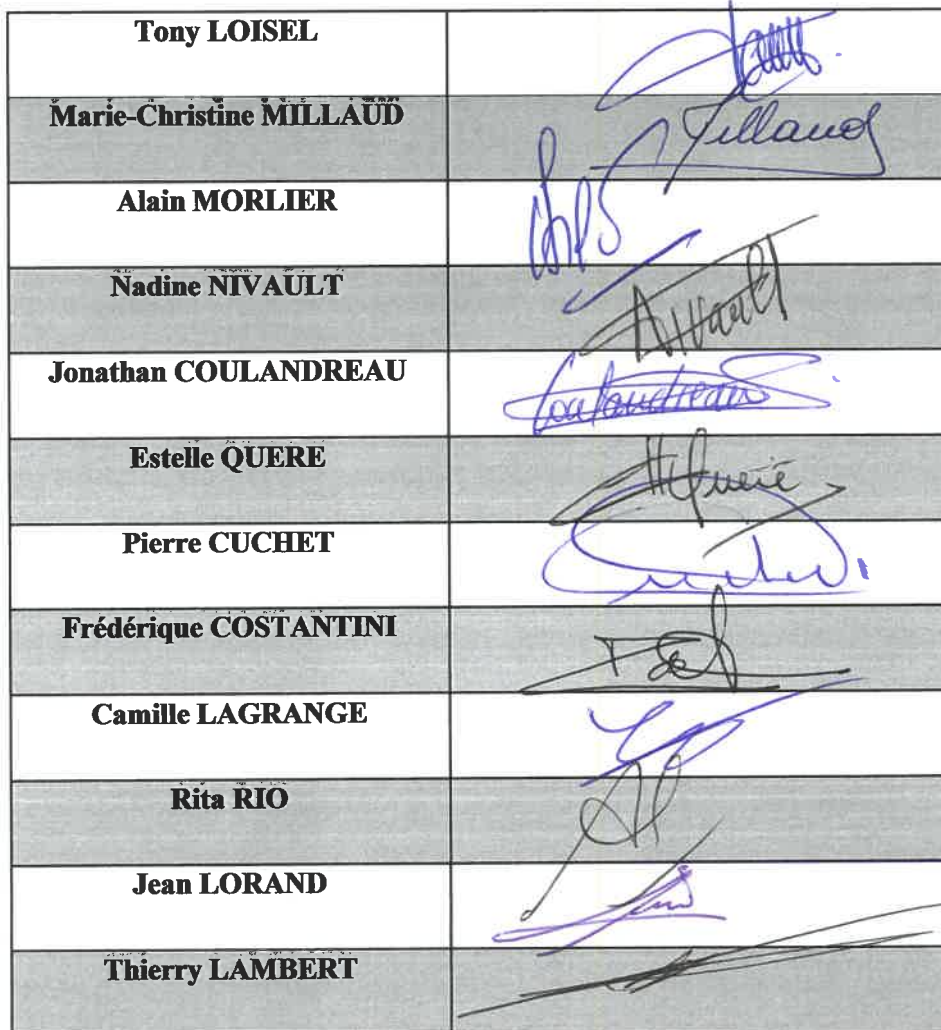 Tony LOISEL
Marie-Christine MILLAUD Millaud
Alain MORLIER
Nadine NIVAULT Nivault
Jonathan COULANDREAU Coulandreau
Estelle QUERE Quere
Pierre CUCHET
Frédérique COSTANTINI
Camille LAGRANGE
Rita RIO
Jean LORAND
Thierry LAMBERT